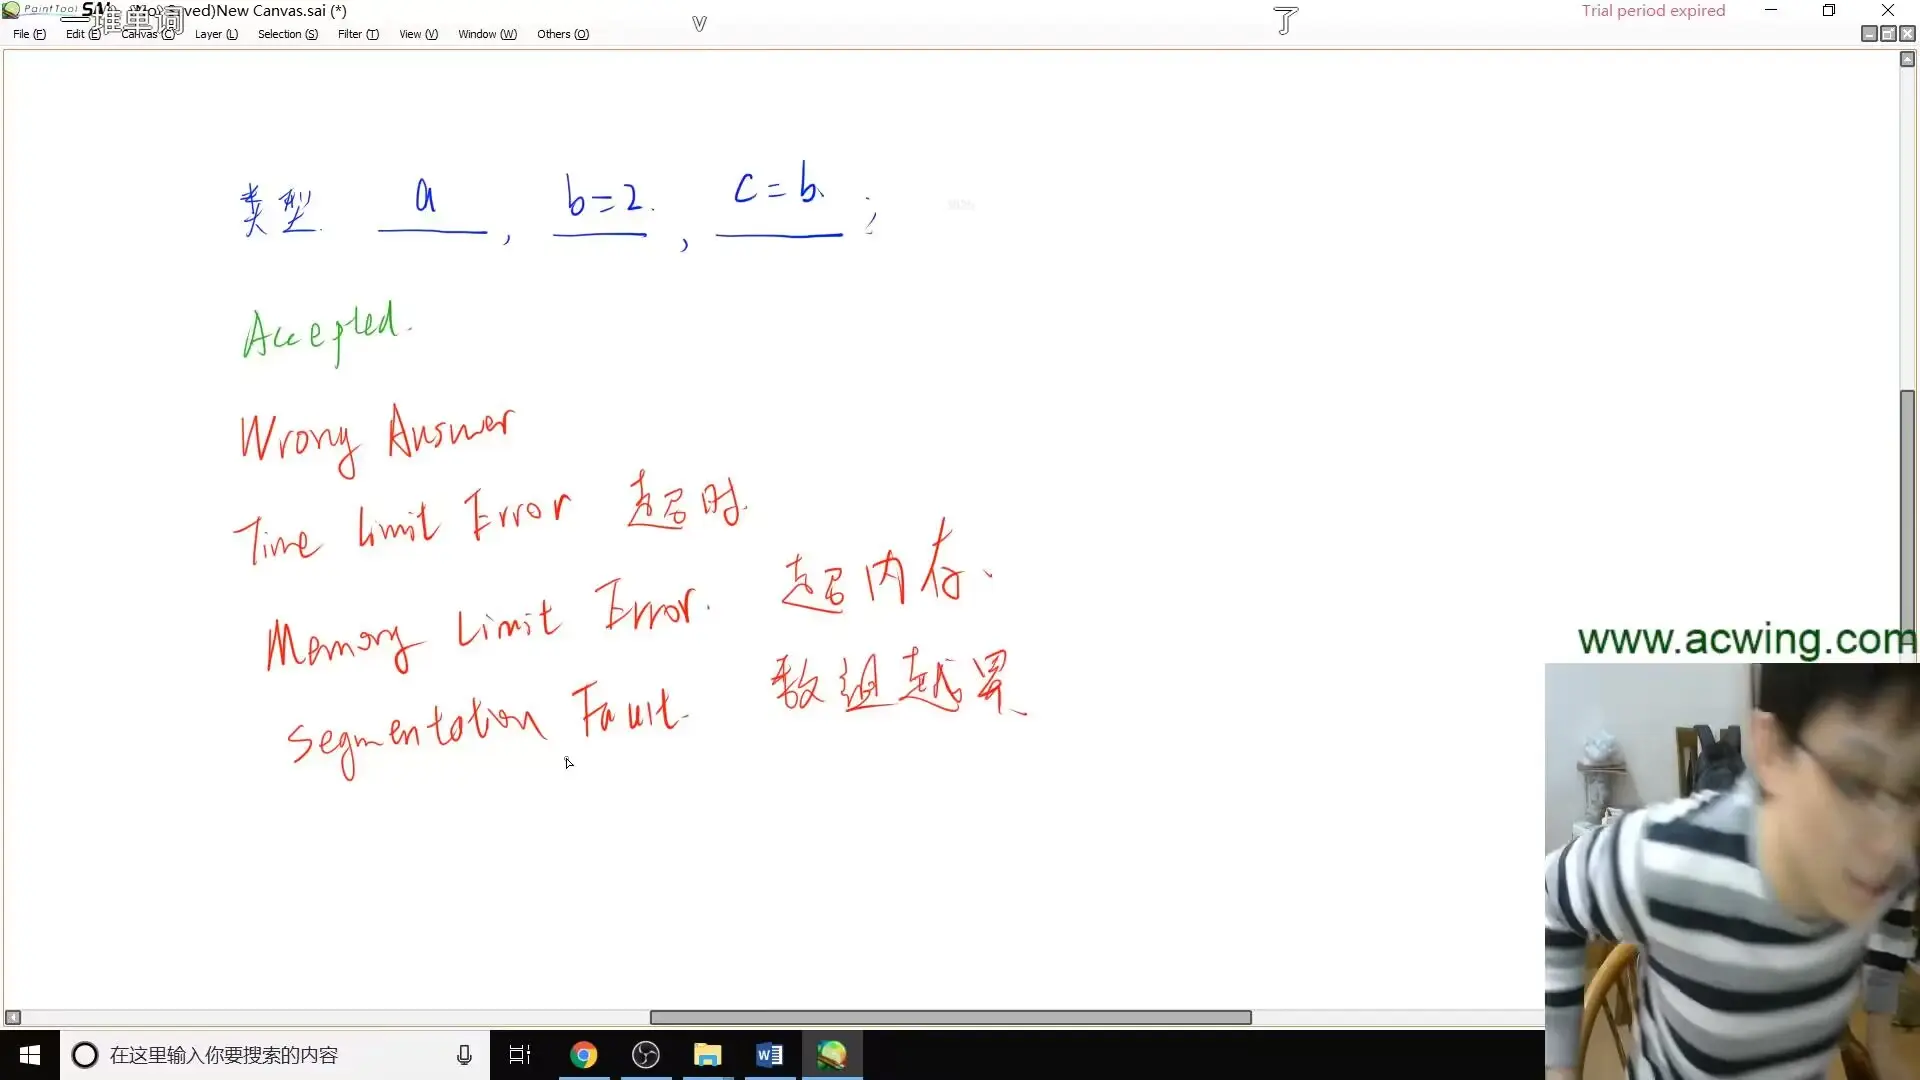 PaintTool SAI ved)New Canvas.sai (*)
一堆单词
v
了
Trial period expired
File (F) Edit (E) Canvas (C) Layer (L) Selection (S) Filter (T) View (V) Window (W) Others (O)
类型 a , b=2 , c=b ;
Accepted.
Wrong Answer
Time Limit Error 超时.
Memory Limit Error. 超内存.
Segmentation Fault. 数组越界
www.acwing.com
在这里输入你要搜索的内容